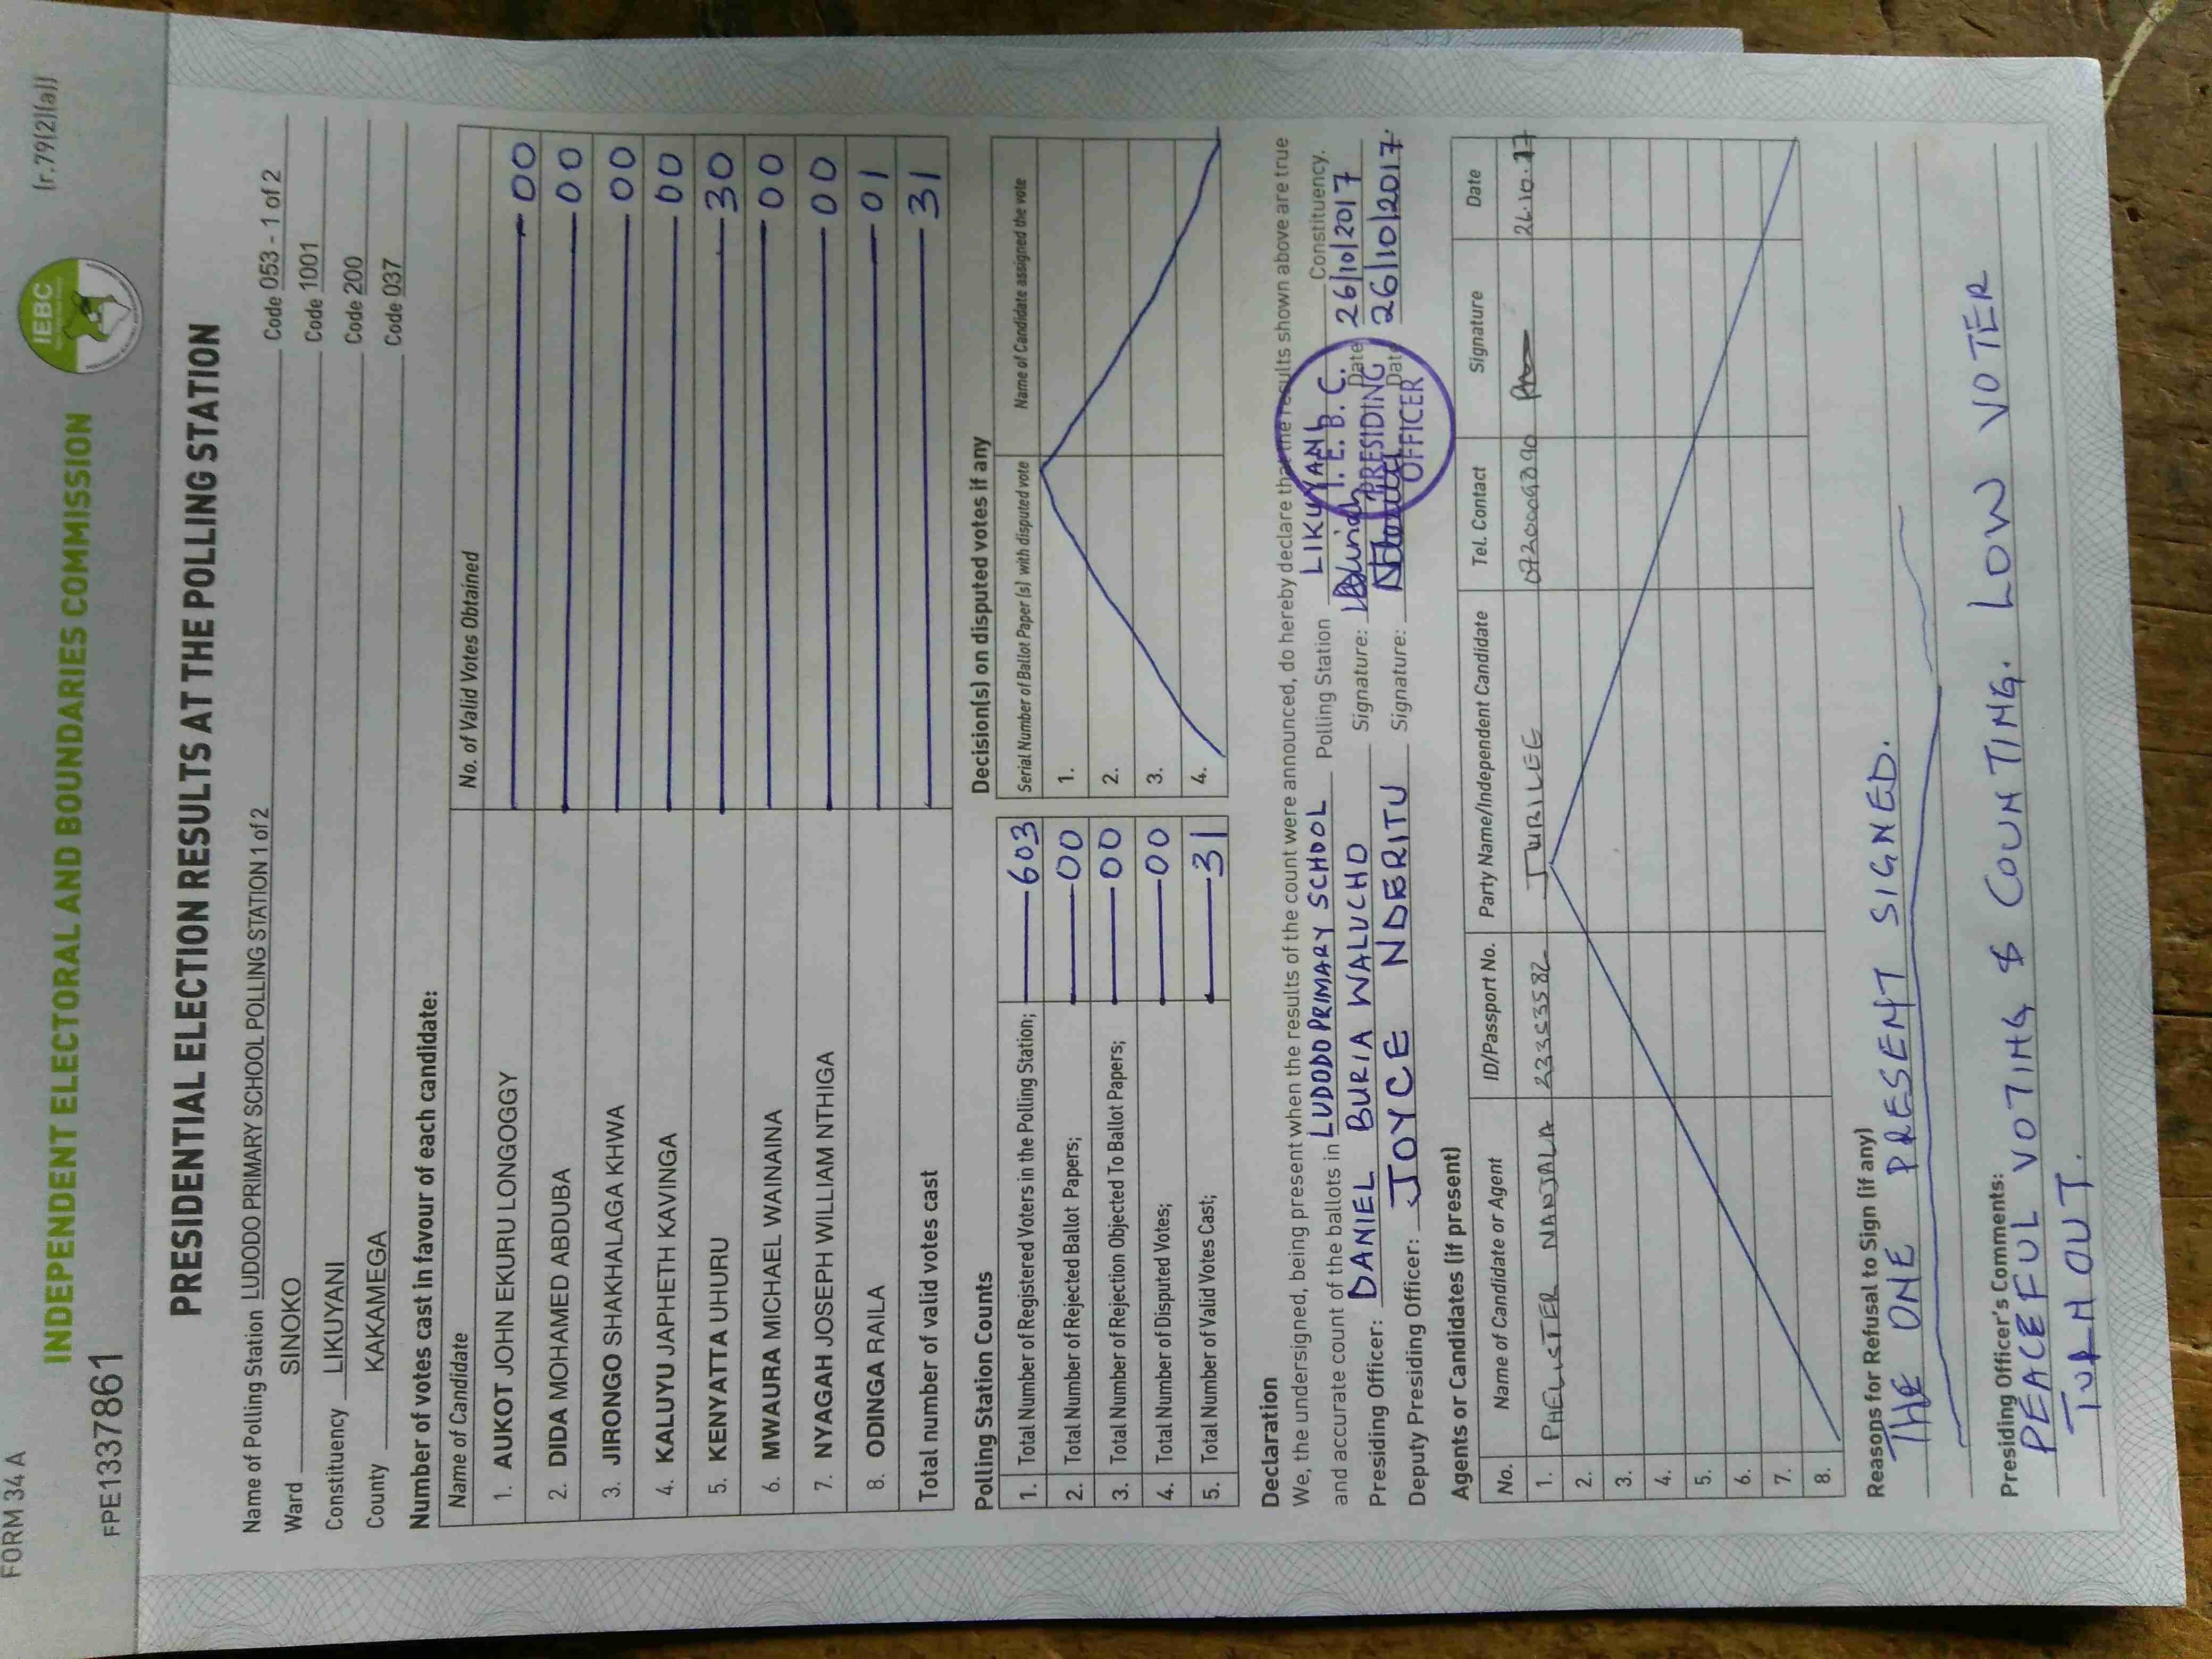 FORM 34 A
(r.79(2)(a))
IEBC
INDEPENDENT ELECTORAL AND BOUNDARIES COMMISSION
FPE1337861
PRESIDENTIAL ELECTION RESULTS AT THE POLLING STATION
Name of Polling Station LUDODO PRIMARY SCHOOL POLLING STATION 1 of 2 Code 053 - 1 of 2
Ward SINOKO Code 1001
Constituency LIKUYANI Code 200
County KAKAMEGA Code 037
Number of votes cast in favour of each candidate:
Name of Candidate No. of Valid Votes Obtained
1. AUKOT JOHN EKURU LONGOGGY 00
2. DIDA MOHAMED ABDUBA 00
3. JIRONGO SHAKHALAGA KHWA 00
4. KALUYU JAPHETH KAVINGA 00
5. KENYATTA UHURU 30
6. MWAURA MICHAEL WAINAINA 00
7. NYAGAH JOSEPH WILLIAM NTHIGA 00
8. ODINGA RAILA 01
Total number of valid votes cast 31
Polling Station Counts
1. Total Number of Registered Voters in the Polling Station; 603
2. Total Number of Rejected Ballot Papers; 00
3. Total Number of Rejection Objected To Ballot Papers; 00
4. Total Number of Disputed Votes; 00
5. Total Number of Valid Votes Cast; 31
Decision(s) on disputed votes if any
Serial Number of Ballot Paper (s) with disputed vote Name of Candidate assigned the vote
1.
2.
3.
4.
Declaration
We, the undersigned, being present when the results of the count were announced, do hereby declare that the results shown above are true
and accurate count of the ballots in LUDODO PRIMARY SCHOOL Polling Station LIKUYANI Constituency.
Presiding Officer: DANIEL BURIA WALUCHO Signature: Date 26/10/2017
Deputy Presiding Officer: JOYCE NDERITU Signature: Date 26/10/2017.
I. E. B. C.
PRESIDING
OFFICER
Agents or Candidates (if present)
No. Name of Candidate or Agent ID/Passport No. Party Name/Independent Candidate Tel. Contact Signature Date
1. PHELISTER NANJALA JUBILEE 26.10.17
2.
3.
4.
5.
6.
7.
8.
Reasons for Refusal to Sign (if any)
THE ONE PRESENT SIGNED.
Presiding Officer's Comments:
PEACEFUL VOTING & COUNTING. LOW VOTER
TURN OUT.